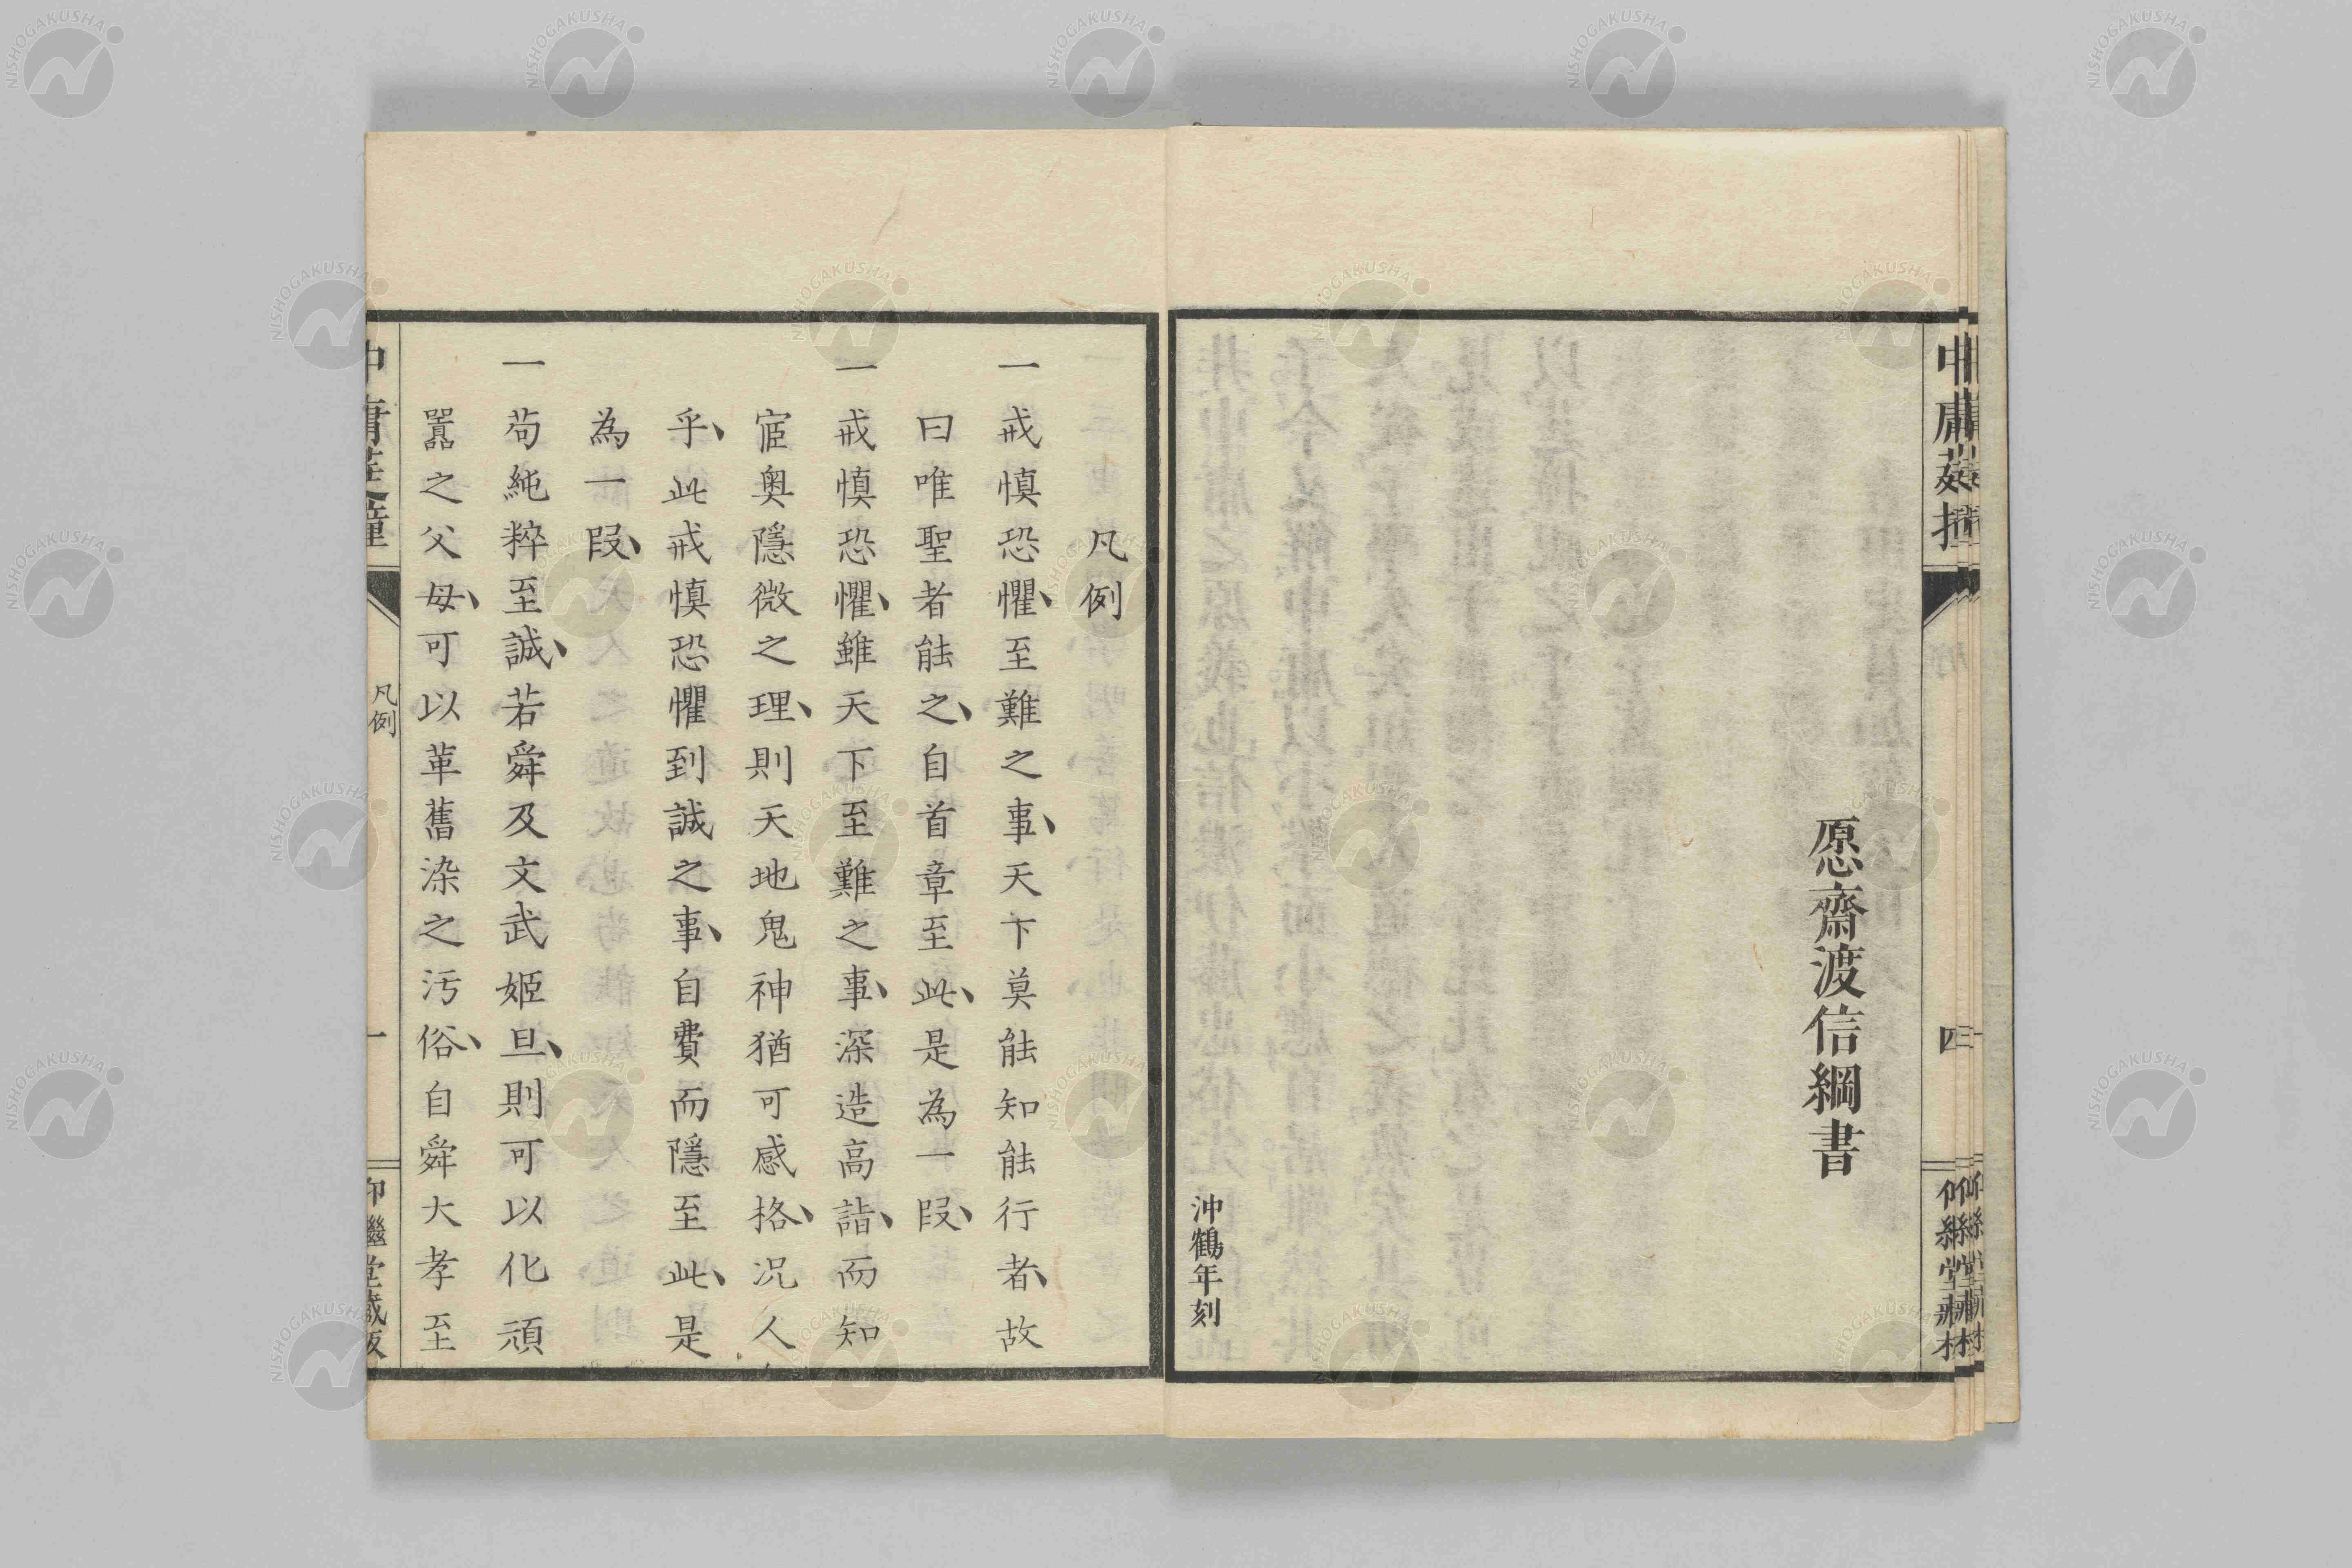 愿齋渡信綱書
沖鶴年刻
凡例
一戒慎恐懼、至難之事、天下莫能知能行者、故
曰唯聖者能之、自首章至此、是為一段、
一戒慎恐懼、雖天下至難之事、深造高詣、而知
宧奧隱微之理、則天地鬼神猶可感格、況人
乎、此戒慎恐懼到誠之事、自費而隱至此、是
為一段、
一苟純粹至誠、若舜及文武姬旦、則可以化頑
嚚之父母、可以革舊染之汚俗、自舜大孝至
凡例
一
四
NISHOGAKUSHA